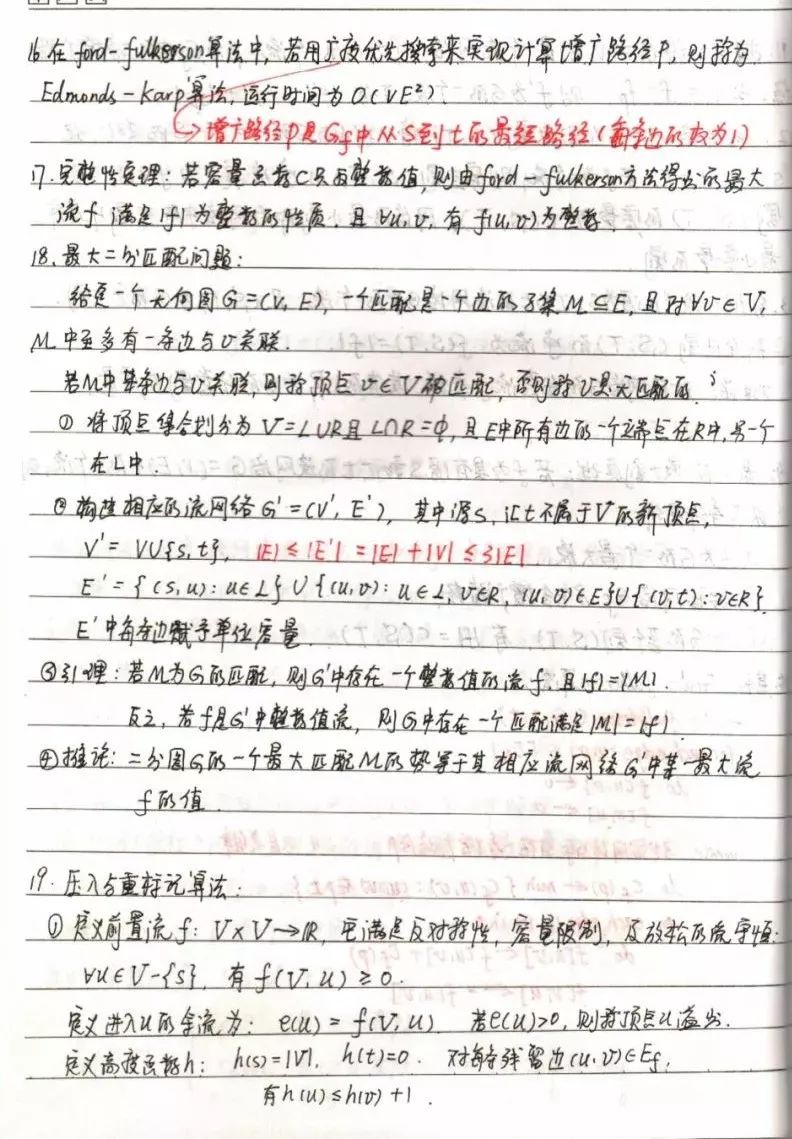 16. 在ford-fulkerson算法中，若用广度优先搜索来实现计算增广路径P，则称为
Edmonds-Karp算法，运行时间为O(VE²).
增广路径P是Gf中从S到t的最短路径（每条边的权为1）
17. 完整性定理：若容量函数C只取整数值，则由ford-fulkerson方法得出的最大
流f满足|f|为整数的性质．且∀u,v，有f(u,v)为整数．
18. 最大二分匹配问题：
给定一个无向图G=(V,E)，一个匹配是一个边的子集M⊆E，且对∀v∈V，
M中至多有一条边与v关联．
若M中某条边与v关联，则称顶点v∈V被匹配，否则称v是无匹配的．
① 将顶点集合划分为V=L∪R且L∩R=Φ，且E中所有边的一个端点在R中，另一个
在L中．
② 构造相应的流网络G'=(V',E')，其中源s，汇t不属于V的新顶点，
V'=V∪{s,t}， |E|≤|E'|=|E|+|V|≤3|E|
E'={(s,u):u∈L}∪{(u,v):u∈L,v∈R,(u,v)∈E}∪{(v,t):v∈R}.
E'中每条边赋予单位容量．
③引理：若M为G的匹配，则G'中存在一个整数值的流f，且|f|=|M|．
反之，若f是G'中整数值流，则G中存在一个匹配满足|M|=|f|．
④推论：二分图G的一个最大匹配M的势等于其相应流网络G'中某一最大流
f的值．
19. 压入与重标记算法：
① 定义前置流f：V×V→R，它满足反对称性，容量限制，及放松的流守恒：
∀u∈V-{s}，有f(V,u)≥0．
定义进入u的余流为：e(u)=f(V,u)．若e(u)>0，则称顶点u溢出．
定义高度函数h：h(s)=|V|，h(t)=0．对每条残留边(u,v)∈Ef，
有h(u)≤h(v)+1．